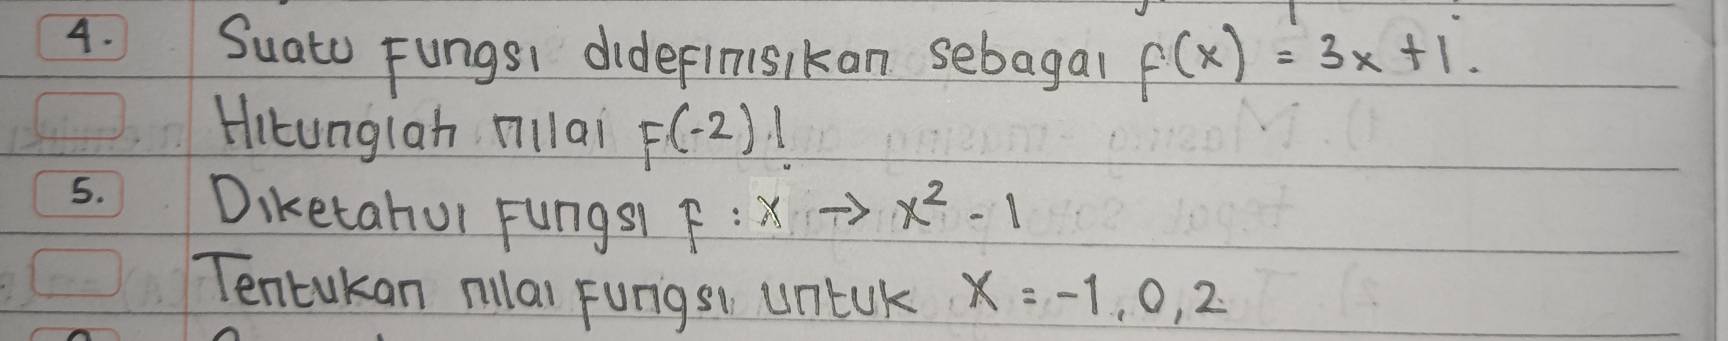 4. Suatu Fungsi didefinisikan sebagai f(x) = 3x + 1.
Hitunglah nilai F(-2)!
5. Diketahui Fungsi F : x → x² - 1
Tentukan nilai Fungsi untuk x = -1, 0, 2